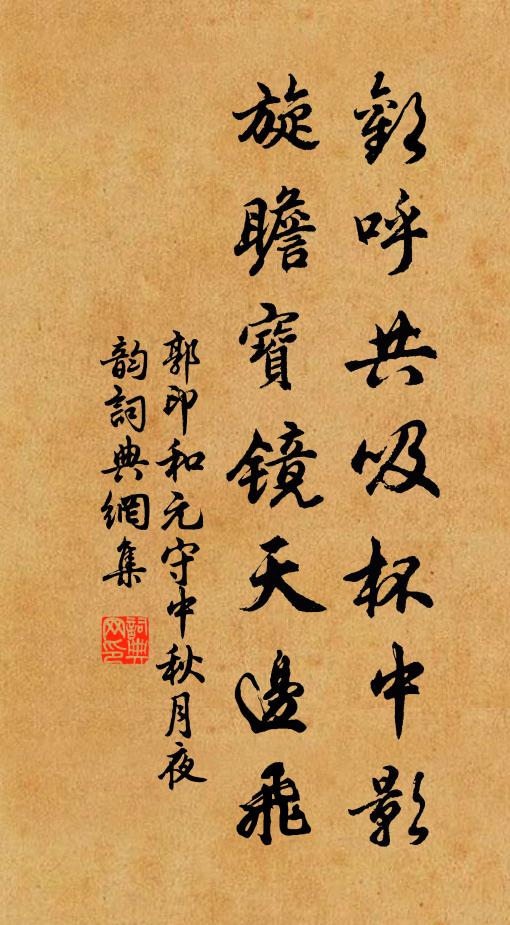 歡呼共吸杯中影
旋瞻寶镜天邊飛
郭印和元守中秋月夜
韵詞典網集
詞典网印